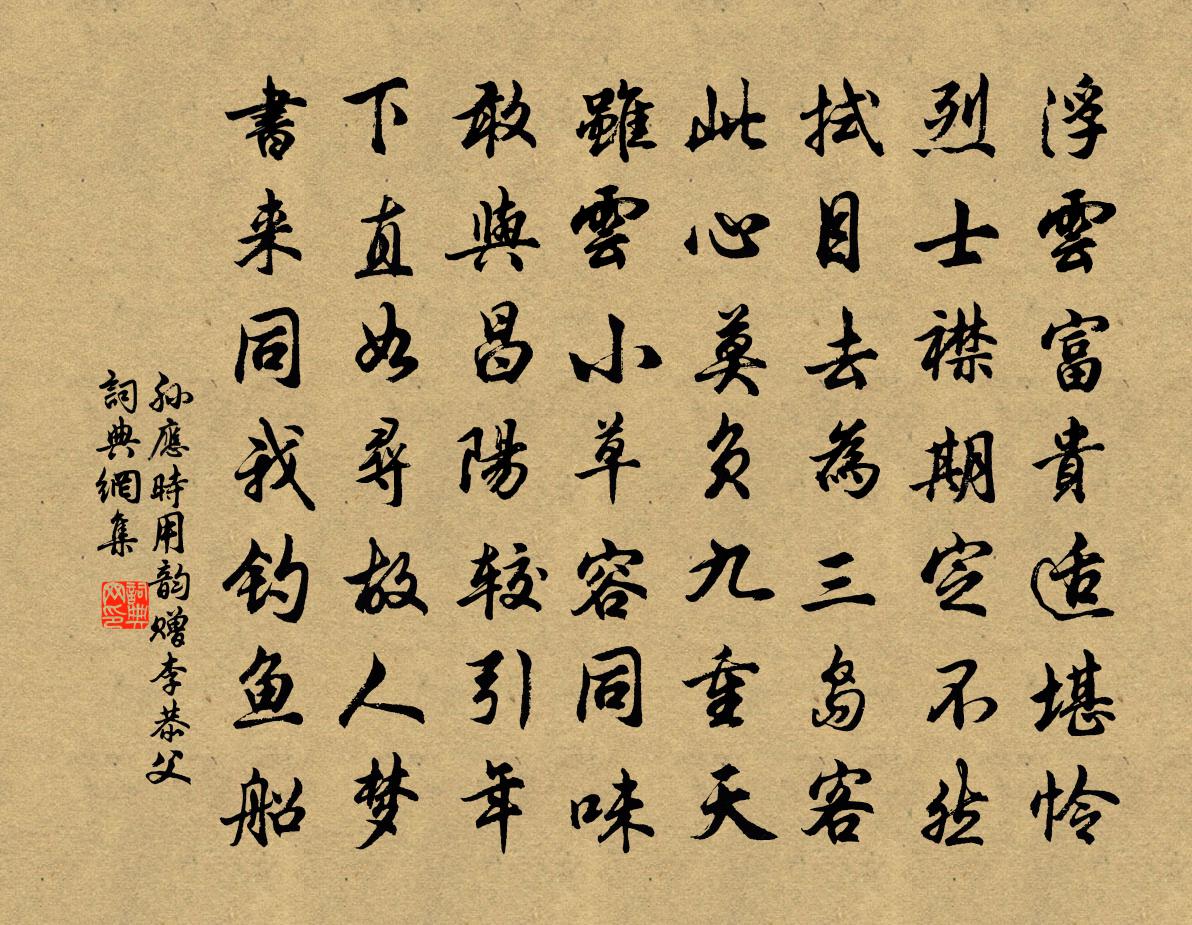 浮雲富貴适堪怜
烈士襟期定不然
拭目去為三島客
此心莫負九重天
雖雲小草容同味
敢與昌陽較引年
下直如尋故人梦
書来同我钓鱼船
孫應時用韵赠李恭父
詞典網集
詞典網印